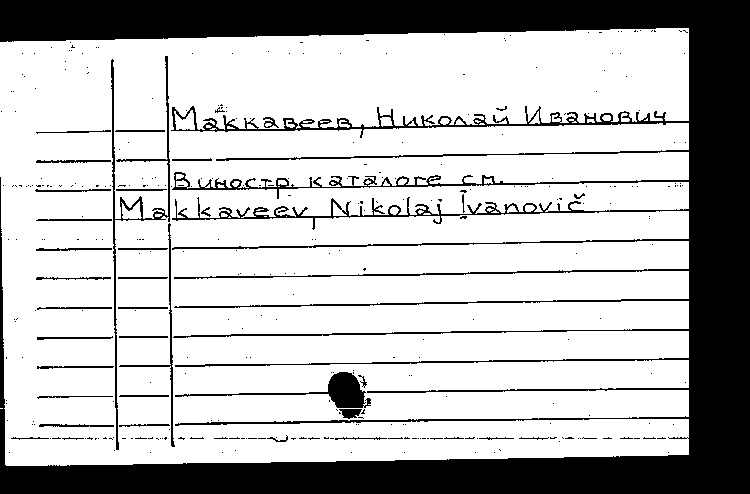 Маккавеев, Николай Иванович
В иностр. каталоге см.
Makkaveev, Nikolaj Ivanovič